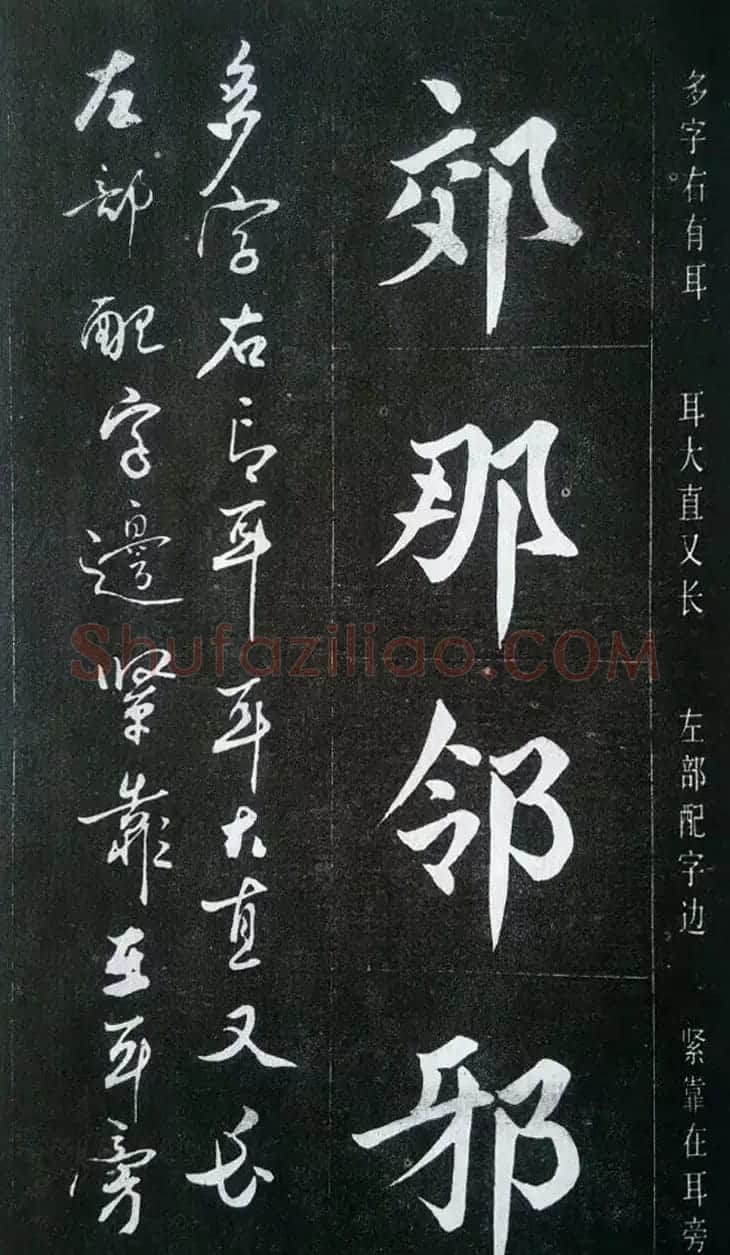 多字右有耳 耳大直又长 左部配字边 紧靠在耳旁
郊那邻邪
多字右有耳耳大直又长
左部配字邊紧靠在耳旁
Shufaziliao.COM